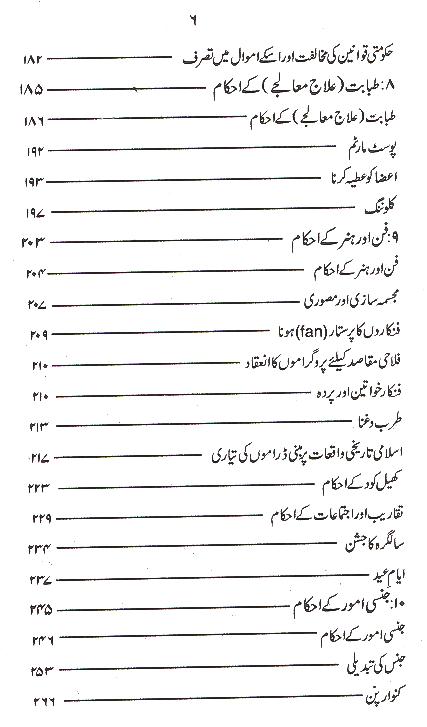 ۶
حکومتی قوانین کی مخالفت اور اسکے اموال میں تصرف ۱۸۲
۸: طبابت (علاج معالجے) کے احکام ۱۸۵
طبابت (علاج معالجے) کے احکام ۱۸۶
پوسٹ مارٹم ۱۹۲
اعضا کو عطیہ کرنا ۱۹۳
کلوننگ ۱۹۷
۹: فن اور ہنر کے احکام ۲۰۳
فن اور ہنر کے احکام ۲۰۴
مجسمہ سازی اور مصوری ۲۰۷
فنکاروں کا پرستار (fan) ہونا ۲۰۹
فلاحی مقاصد کیلئے پروگراموں کا انعقاد ۲۱۰
فنکار خواتین اور پردہ ۲۱۰
طرب و غنا ۲۱۳
اسلامی تاریخی واقعات پر مبنی ڈراموں کی تیاری ۲۱۷
کھیل کود کے احکام ۲۲۳
تقاریب اور اجتماعات کے احکام ۲۲۹
سالگرہ کا جشن ۲۳۴
ایام عید ۲۳۷
۱۰: جنسی امور کے احکام ۲۴۵
جنسی امور کے احکام ۲۴۶
جنس کی تبدیلی ۲۵۳
کنوار پن ۲۶۶